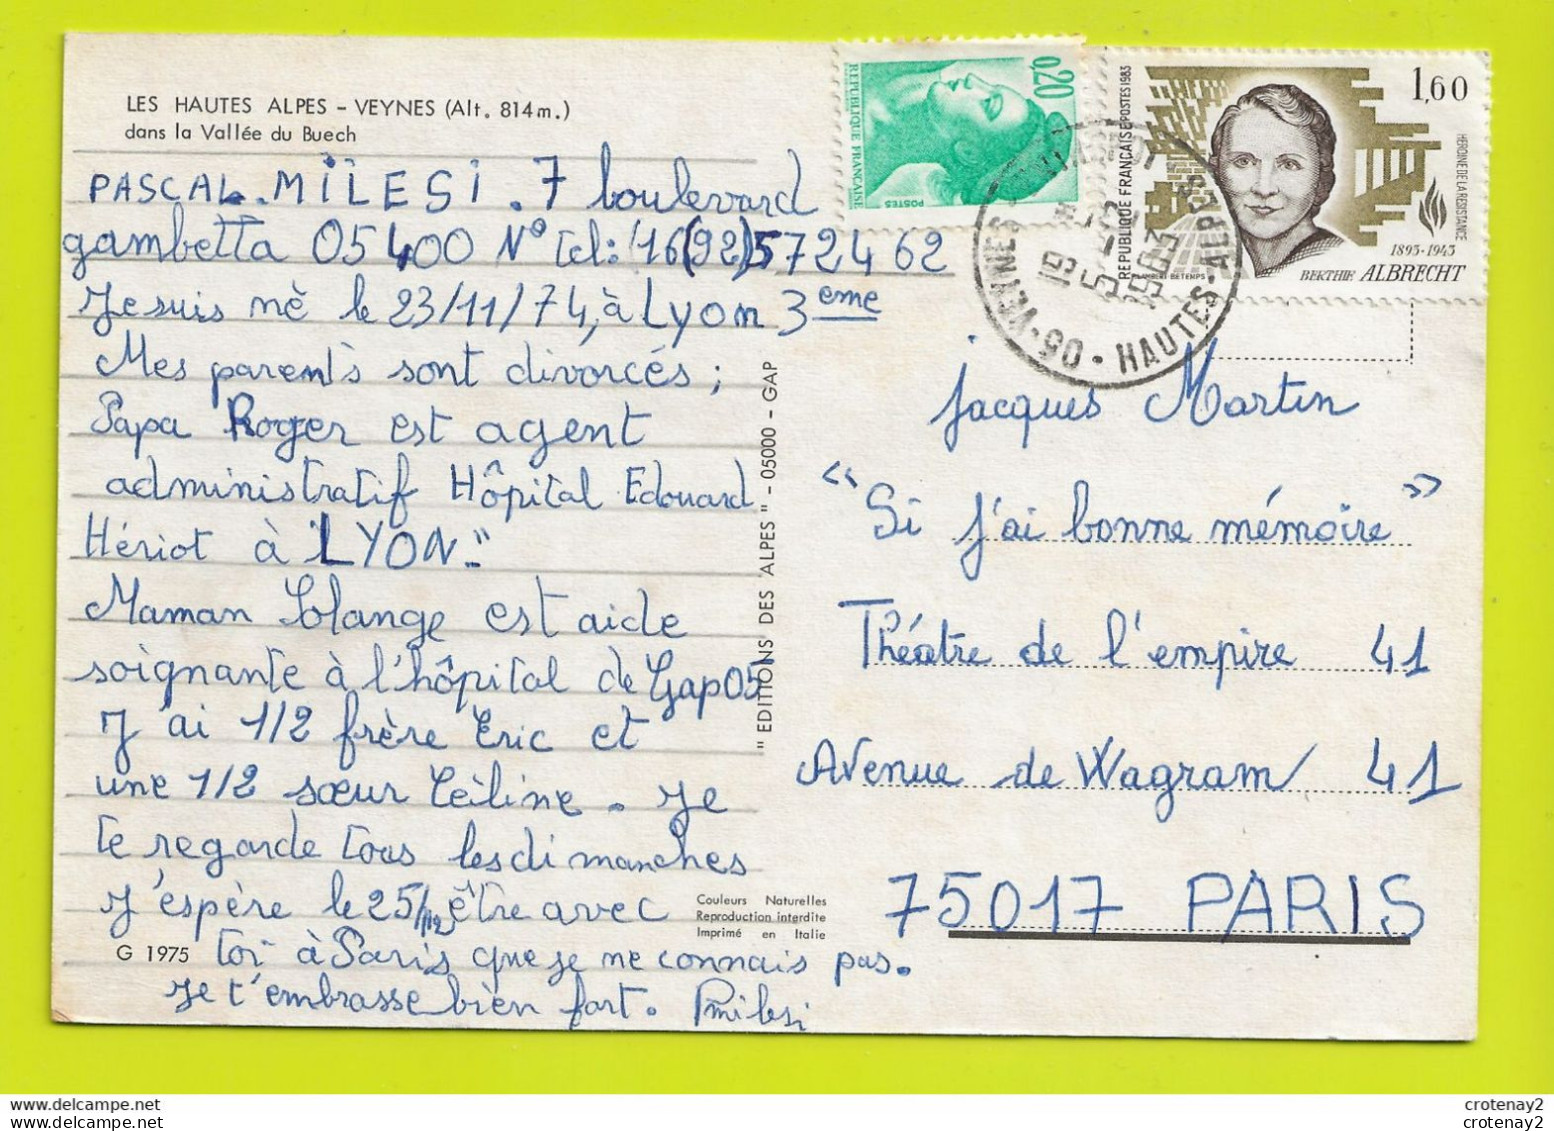 LES HAUTES ALPES - VEYNES (Alt. 814 m.)
dans la Vallée du Buech
PASCAL. MILESI. 7 boulevard
gambetta 05400 N° tel: (16(92)572462
Je suis né le 23/11/74, à Lyon 3eme
Mes parents sont divorcés ;
Papa Roger est agent
administratif Hôpital Edouard
Hériot à LYON."
Maman Solange est aide
soignante à l'hôpital de Gap05
J'ai 1/2 frère Eric et
une 1/2 sœur Céiline. Je
te regarde tous les dimanches
J'espère le 25/12 être avec
toi à Paris que je ne connais pas.
Je t'embrasse bien fort. Pmilesi
G 1975
Couleurs Naturelles
Reproduction interdite
Imprimé en Italie
"EDITIONS DES ALPES" - 05000 - GAP
0,20
REPUBLIQUE FRANÇAISE
POSTES
1,60
REPUBLIQUE FRANÇAISE POSTES 1983
HEROINE DE LA RESISTANCE
1893-1943
BERTHIE ALBRECHT
LAMBERT BETEMPS
VEYNES
05 · HAUTES-ALPES
1983
Jacques Martin
" Si j'ai bonne mémoire "
Théatre de l'empire 41
Avenue de Wagram 41
75017 PARIS
crotenay2
crotenay2
crotenay2
crotenay2